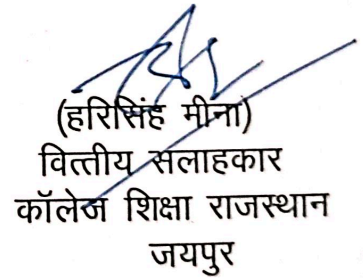 (हरिसिंह मीना)
वित्तीय सलाहकार
कॉलेज शिक्षा राजस्थान
जयपुर